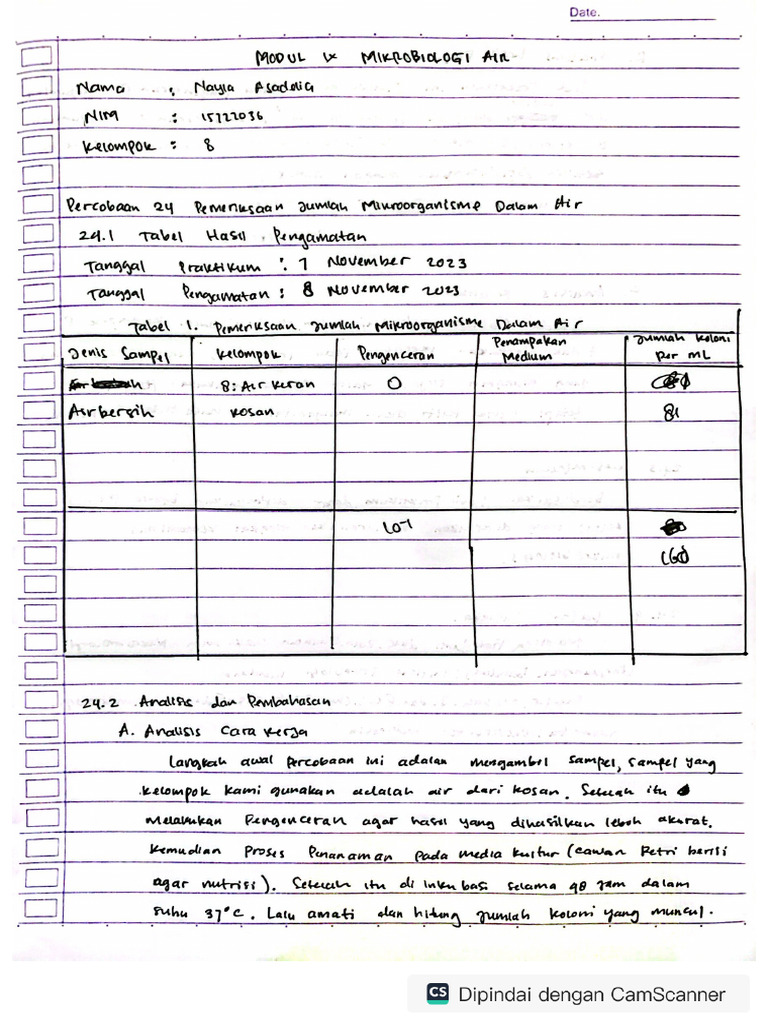 Date.
MODUL IX MIKROBIOLOGI AIR
Nama : Nayla Asadelia
NIM : 15722036
Kelompok : 8
Percobaan 24 Pemeriksaan Jumlah Mikroorganisme Dalam Air
24.1 Tabel Hasil Pengamatan
Tanggal Praktikum : 7 November 2023
Tanggal Pengamatan : 8 November 2023
Tabel 1. Pemeriksaan Jumlah Mikroorganisme Dalam Air
Jenis Sampel Kelompok Pengenceran Penampakan Medium Jumlah koloni per mL
8: Air keran 0
Air bersih kosan 81
10-1
160
24.2 Analisis dan Pembahasan
A. Analisis Cara Kerja
Langkah awal percobaan ini adalah mengambil sampel, sampel yang
kelompok kami gunakan adalah air dari kosan. Setelah itu
melakukan pengenceran agar hasil yang dihasilkan lebih akurat.
Kemudian proses penanaman pada media kultur (cawan Petri berisi
agar nutrisi). Setelah itu di inkubasi selama 48 jam dalam
suhu 37°C. Lalu amati dan hitung jumlah koloni yang muncul.
CS Dipindai dengan CamScanner